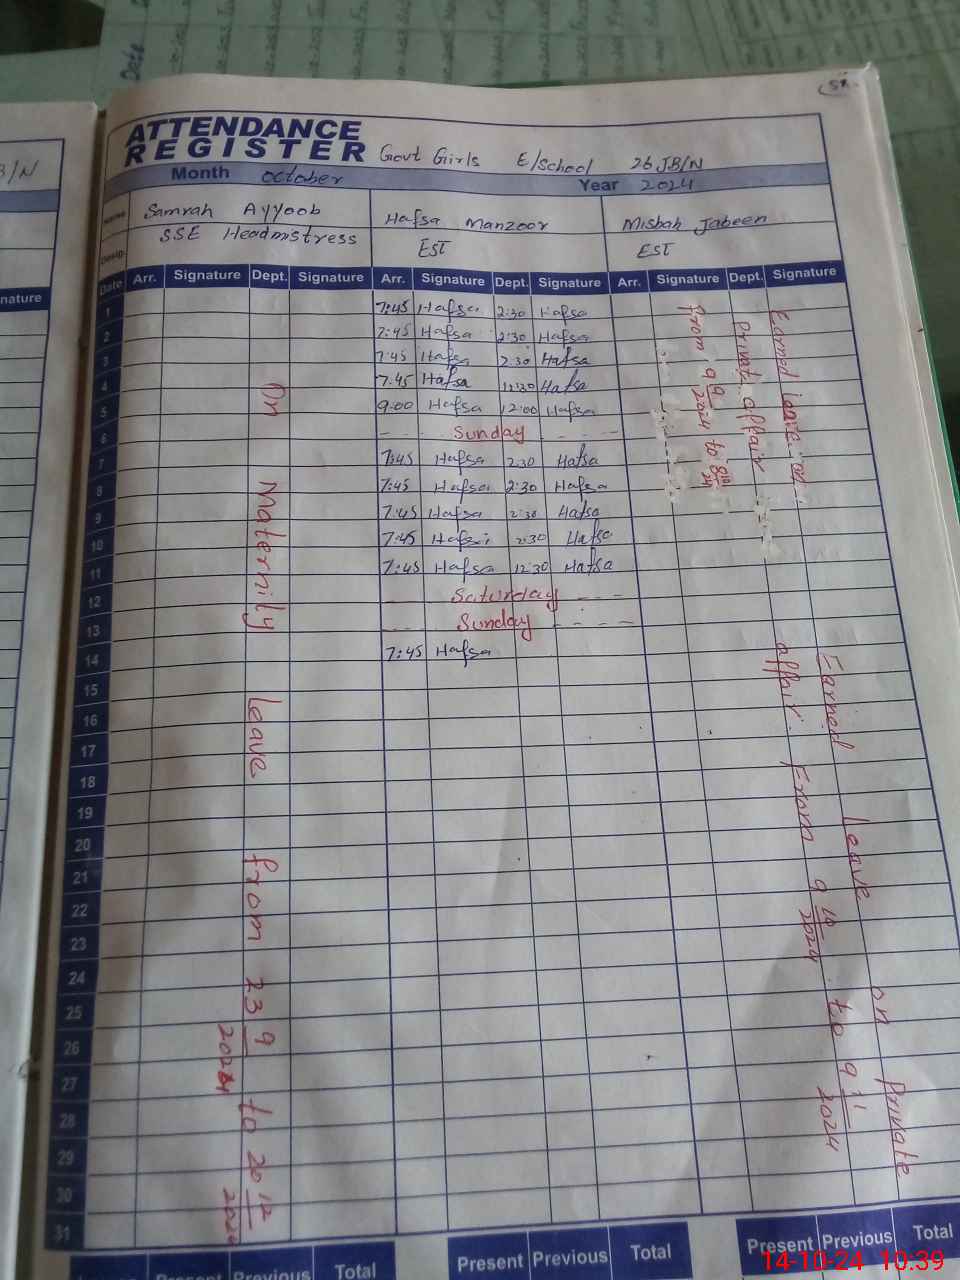 58
ATTENDANCE
REGISTER Govt Girls E/School 26 JB/N
Month October Year 2024
Name Samrah Ayyoob Hafsa Manzoor Misbah Jabeen
Desig. SSE Headmistress EST EST
Date Arr. Signature Dept. Signature Arr. Signature Dept. Signature Arr. Signature Dept. Signature
1 7:45 Hafsa 2:30 Hafsa
2 7:45 Hafsa 2:30 Hafsa
3 7:45 Hafsa 2:30 Hafsa
4 7:45 Hafsa 12:30 Hafsa
5 9:00 Hafsa 12:00 Hafsa
6 Sunday
7 7:45 Hafsa 2:30 Hafsa
8 7:45 Hafsa 2:30 Hafsa
9 7:45 Hafsa 2:30 Hafsa
10 7:45 Hafsa 2:30 Hafsa
11 7:45 Hafsa 12:30 Hafsa
12 Saturday
13 Sunday
14 7:45 Hafsa
15
16
17
18
19
20
21
22
23
24
25
26
27
28
29
30
31
On Maternily Leave from 23 9/2024 to 20 12/2024
Earned leave on
Private affair
From 9 9/2024 to 8 10/24
Earned Leave on Private
affair From 9 10/2024 to 9 11/2024
Previous Total Present Previous Total Present Previous Total
B/N
nature
Date
14-10-24 10:39